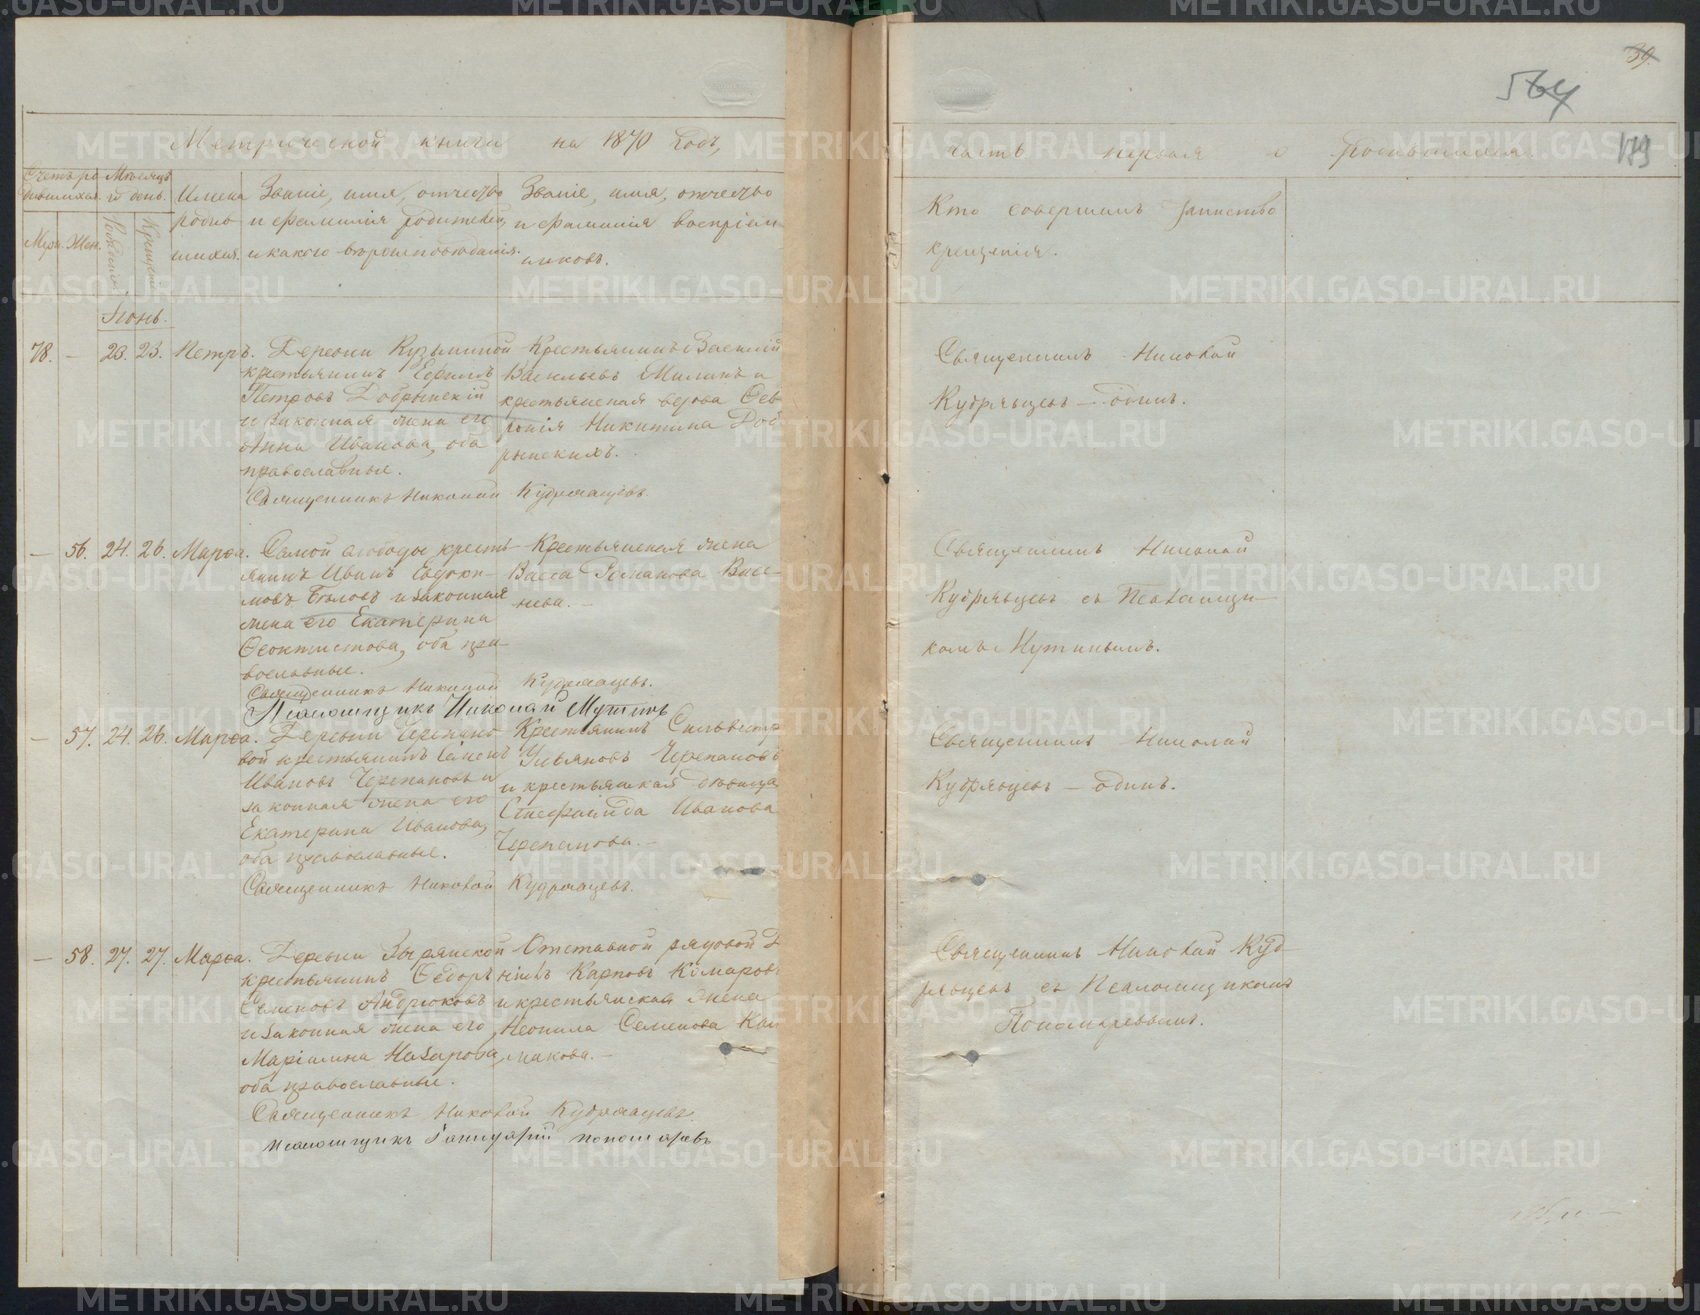 39.
564
179
Метрической книги на 1870 годъ,
часть первая о родившихся.
Счетъ ро-
дившихся.
Мѣсяцъ
и день.
Муж. Жен.
Рожденія
Крещенія
Имена
родив-
шихся.
Званіе, имя, отчество
и фамилія родителей,
и какого вѣроисповѣданія.
Званіе, имя, отчество
и фамилія воспріем-
никовъ.
Кто совершалъ таинство
крещенія.
Іюнь.
78. — 23. 23. Петръ.
Деревни Кузьминой
крестьянинъ
Петровъ Добрынскій
и законная жена его
Анна Иванова, оба
православные.
Крестьянинъ Василій
Васильевъ
крестьянская вдова Фев-
ронія Никитина Доб-
рынскихъ.
Священникъ Николай Кудрявцевъ.
Священникъ Николай
Кудрявцевъ — одинъ.
— 56. 24. 26. Марѳа.
Самой слободы кресть-
янинъ Иванъ Евдоки-
мовъ Бѣловъ и законная
жена его Екатерина
Феоктистова, оба пра-
вославные.
Крестьянская жена
Васса Романова
Священникъ Николай Кудрявцевъ.
Псаломщикъ Николай Мутинъ
Священникъ Николай
Кудрявцевъ съ Псаломщи-
комъ Мутинымъ.
— 57. 24. 26. Марѳа.
Деревни Черепано-
вой крестьянинъ Семенъ
Ивановъ Черепановъ и
законная жена его
Екатерина Иванова,
оба православные.
Крестьянинъ Сильвестръ
Ульяновъ Черепановъ
и крестьянская дѣвица
Стефанида Иванова
Черепанова. —
Священникъ Николай Кудрявцевъ.
Священникъ Николай
Кудрявцевъ — одинъ.
— 58. 27. 27. Марѳа.
Деревни Зырянской
крестьянинъ Ѳедоръ
Семеновъ Андрюковъ
и законная жена его
Маріамна Назарова,
оба православные.
Отставной рядовой
Карповъ Комаровъ
и крестьянская жена
Неонила Семенова
Священникъ Николай Кудрявцевъ.
Псаломщикъ Геннадій Пономаревъ
Священникъ Николай Куд-
рявцевъ съ Псаломщикомъ
Пономаревымъ.
METRIKI.GASO-URAL.RU